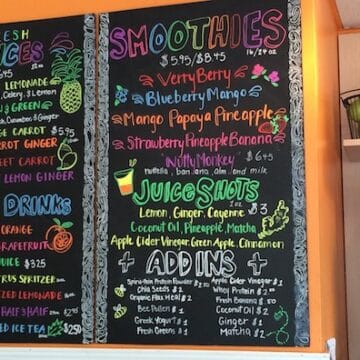 FRESH
JUICES
$6.95
LEMONADE
, Celery, & Lemon
N & GREEN
, Cucumber & Ginger
GE CARROT $5.95
CARROT GINGER
EET CARROT
LEMON GINGER
DRINKS
ORANGE
GRAPEFRUIT
JUICE $3.25
CITRUS SPRITZER
LEMONADE
HALF & HALF
ICED ICE TEA $2.50
SMOOTHIES
$5.95/$8.45 16/24 oz
Verry Berry
Blueberry Mango
Mango Papaya Pineapple
Strawberry Pineapple Banana
"Nutty Monkey" $6.45
Nutella, banana, almond milk
JUICE SHOTS
1 oz
Lemon, Ginger, Cayenne $3
Coconut Oil, Pineapple, Matcha
Apple Cider Vinegar, Green Apple, Cinnamon
+ ADD INS +
Spiru-tein Protein Powder $2
Chia Seeds $1
Organic Flax Meal $2
Bee Pollen $1
Greek Yogurt $1
Fresh Greens $1
Apple Cider Vinegar $1
Whey Protein $2
Fresh Banana $.50
Coconut Oil $2
Ginger $1
Matcha $2